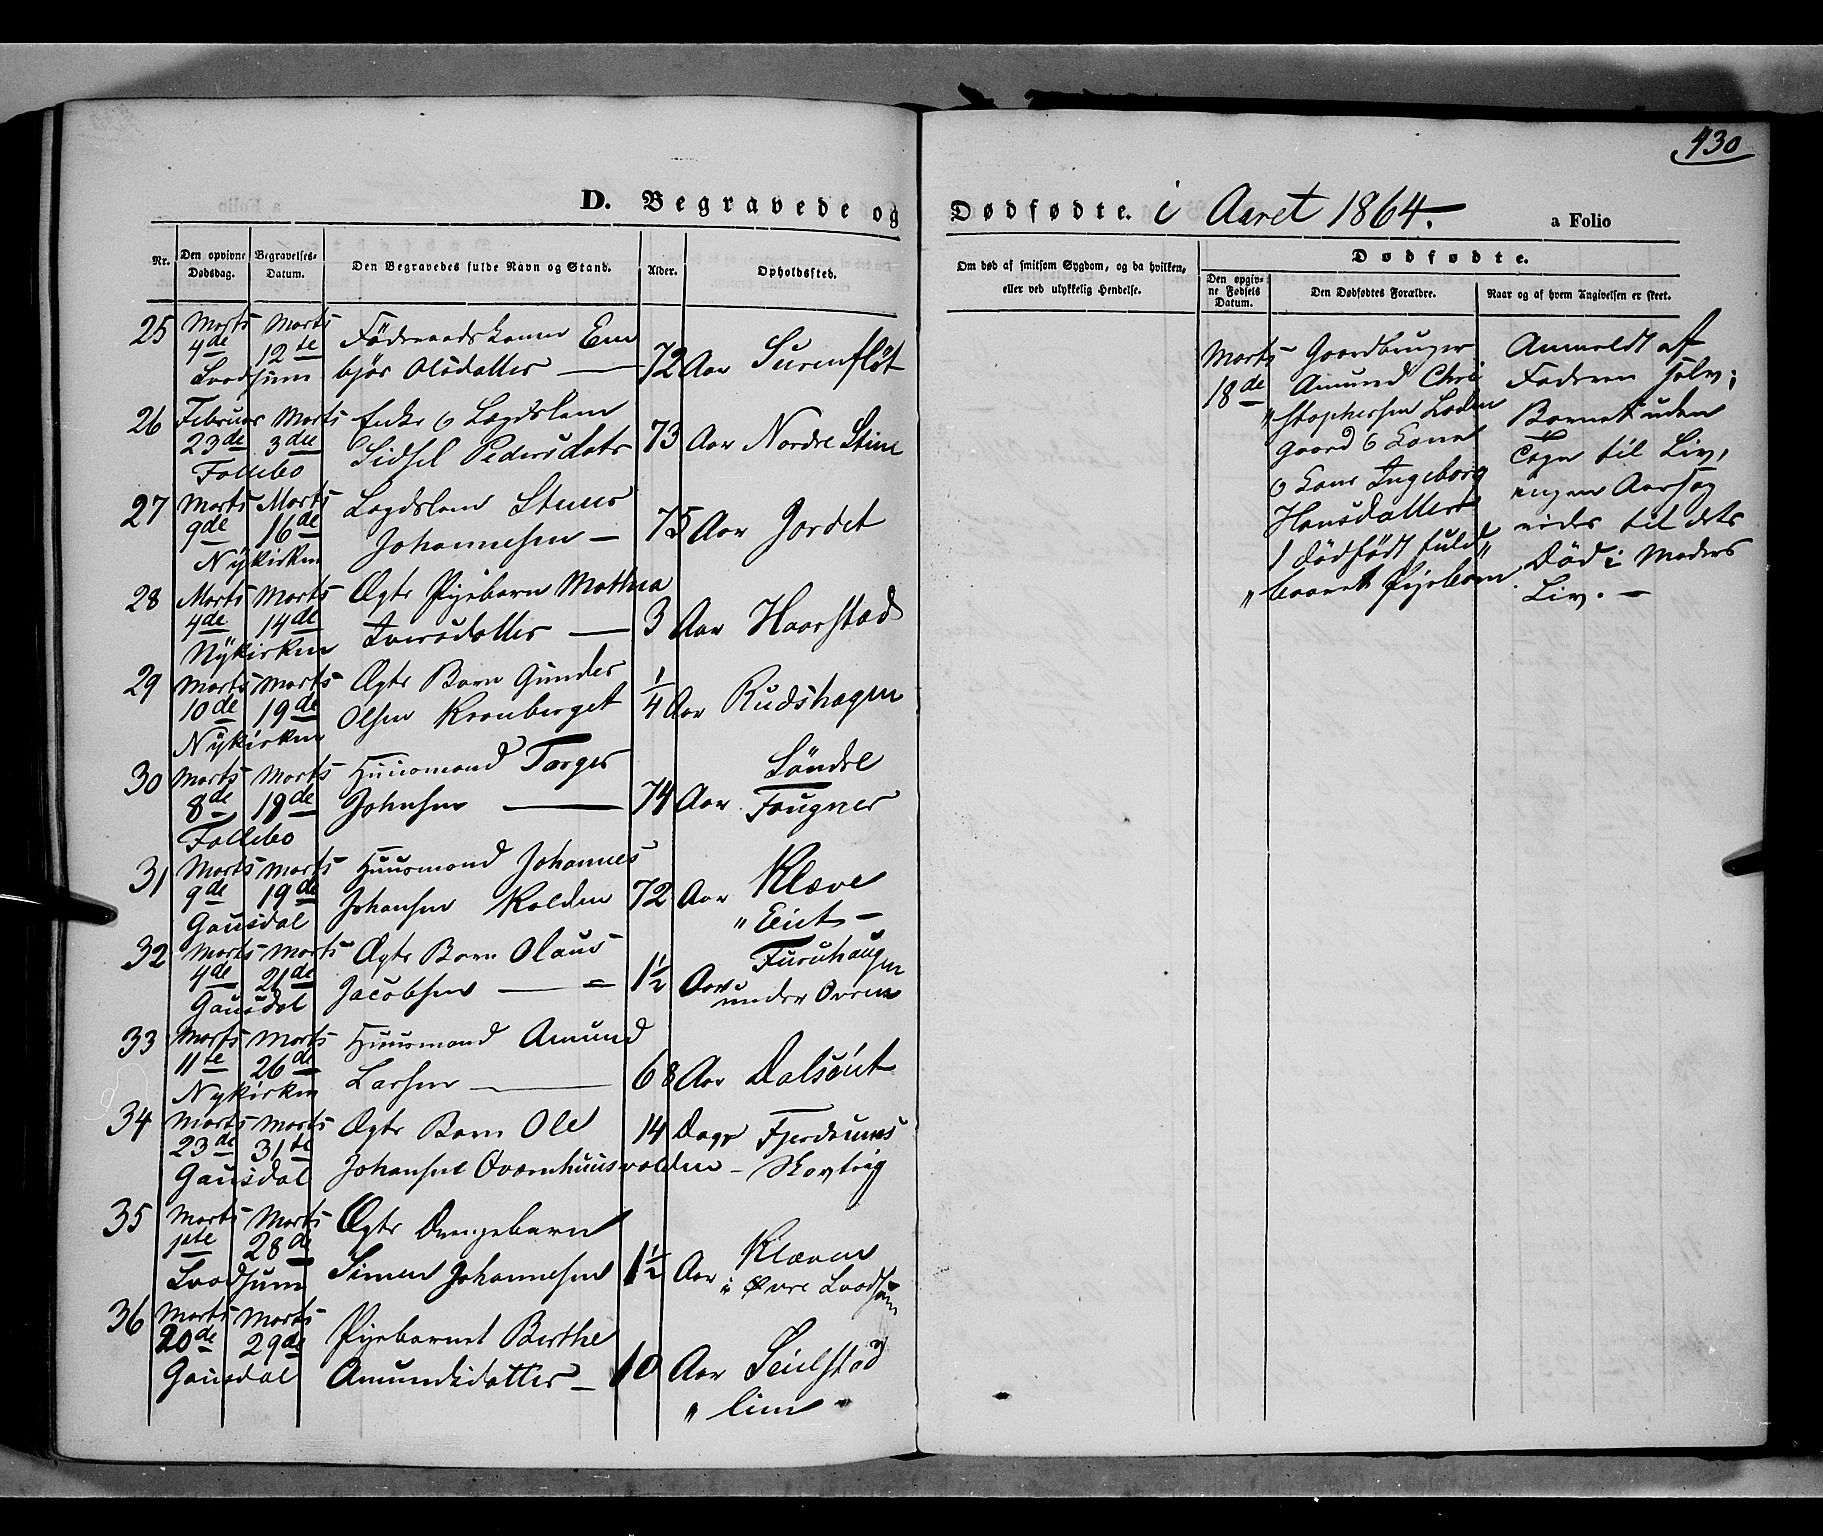 430
D. Begravede og Dødfødte. i Aaret 1864.
a Folio
Nr.
Den opgivne Dødsdag.
Begravelses-Datum.
Den Begravedes fulde Navn og Stand.
Alder.
Opholdssted.
Om død af smitsom Sygdom, og da hvilken,
eller ved ulykkelig Hendelse.
Dødfødte.
Den opgiv-
ne Fødsels
Datum.
Den Dødfødtes Forældre.
Naar og af hvem Angivelsen er skeet.
25 Marts Marts Födraadskone Em
4de 12te björ Olsdatter — 72 Aar Surenflöt
Svodsum
26 Februar Marts Enke o Lægdslem
23de 3die Sidsel Pedersdatr 73 Aar Nordre Stine
Follebo
27 Marts Marts Lægdslem Stener
9de 16de Johannesen — 75 Aar Jordet
Nÿkirken
28 Marts Marts Ægte Pigebarn Mathea
4de 14de Iversdatter — 3 Aar Haarstad
Nÿkirken
29 Marts Marts Ægte Barn Gunder
10de 19de Olsen Kronberget 1/4 Aar Rudshagen
Nÿkirken
30 Marts Marts Huusmand Torger
8de 19de Johnsen — 74 Aar Söndre
Follebo Fougner
31 Marts Marts Huusmand Johannes
9de 19de Johansen Kolden 72 Aar Klæve
Gausdal " Eiet —
32 Marts Marts Ægte Barn Olaus
4de 21de Jacobsen — 1½ Aar Furuhaugen
Gausdal under Overn
33 Marts Marts Huusmand Amund
11te 26de Larsen — 68 Aar Dalseiet
Nykirken
34 Marts Marts Ægte Barn Ole 14 Dage Fjerdumes
23de 31te Johansen Qværnhuusvolden — Skovteig
Gausdal
35 Marts Marts Ægte Drengebarn
1ste 28de Simen Johannesen 1½ Aar Klæven
Svodsum i Øvre Svodsum
36 Marts Marts Pigebarnet Berthe
20de 29de Amundsdatter — 10 Aar Seielstad
Gausdal " lien -
Marts
18de
Gaardbruger
Amund Chri
" stophersen Loden
gaard o Kone
Ingeborg
Hansdatters
1 dödfödt fuld"
" baaret Pigebarn.
Anmeldt af
Faderen selv;
Barnet uden
Tegn til Liv,
ingen Aarsag
vides til dets
Död i Moders
Liv. —